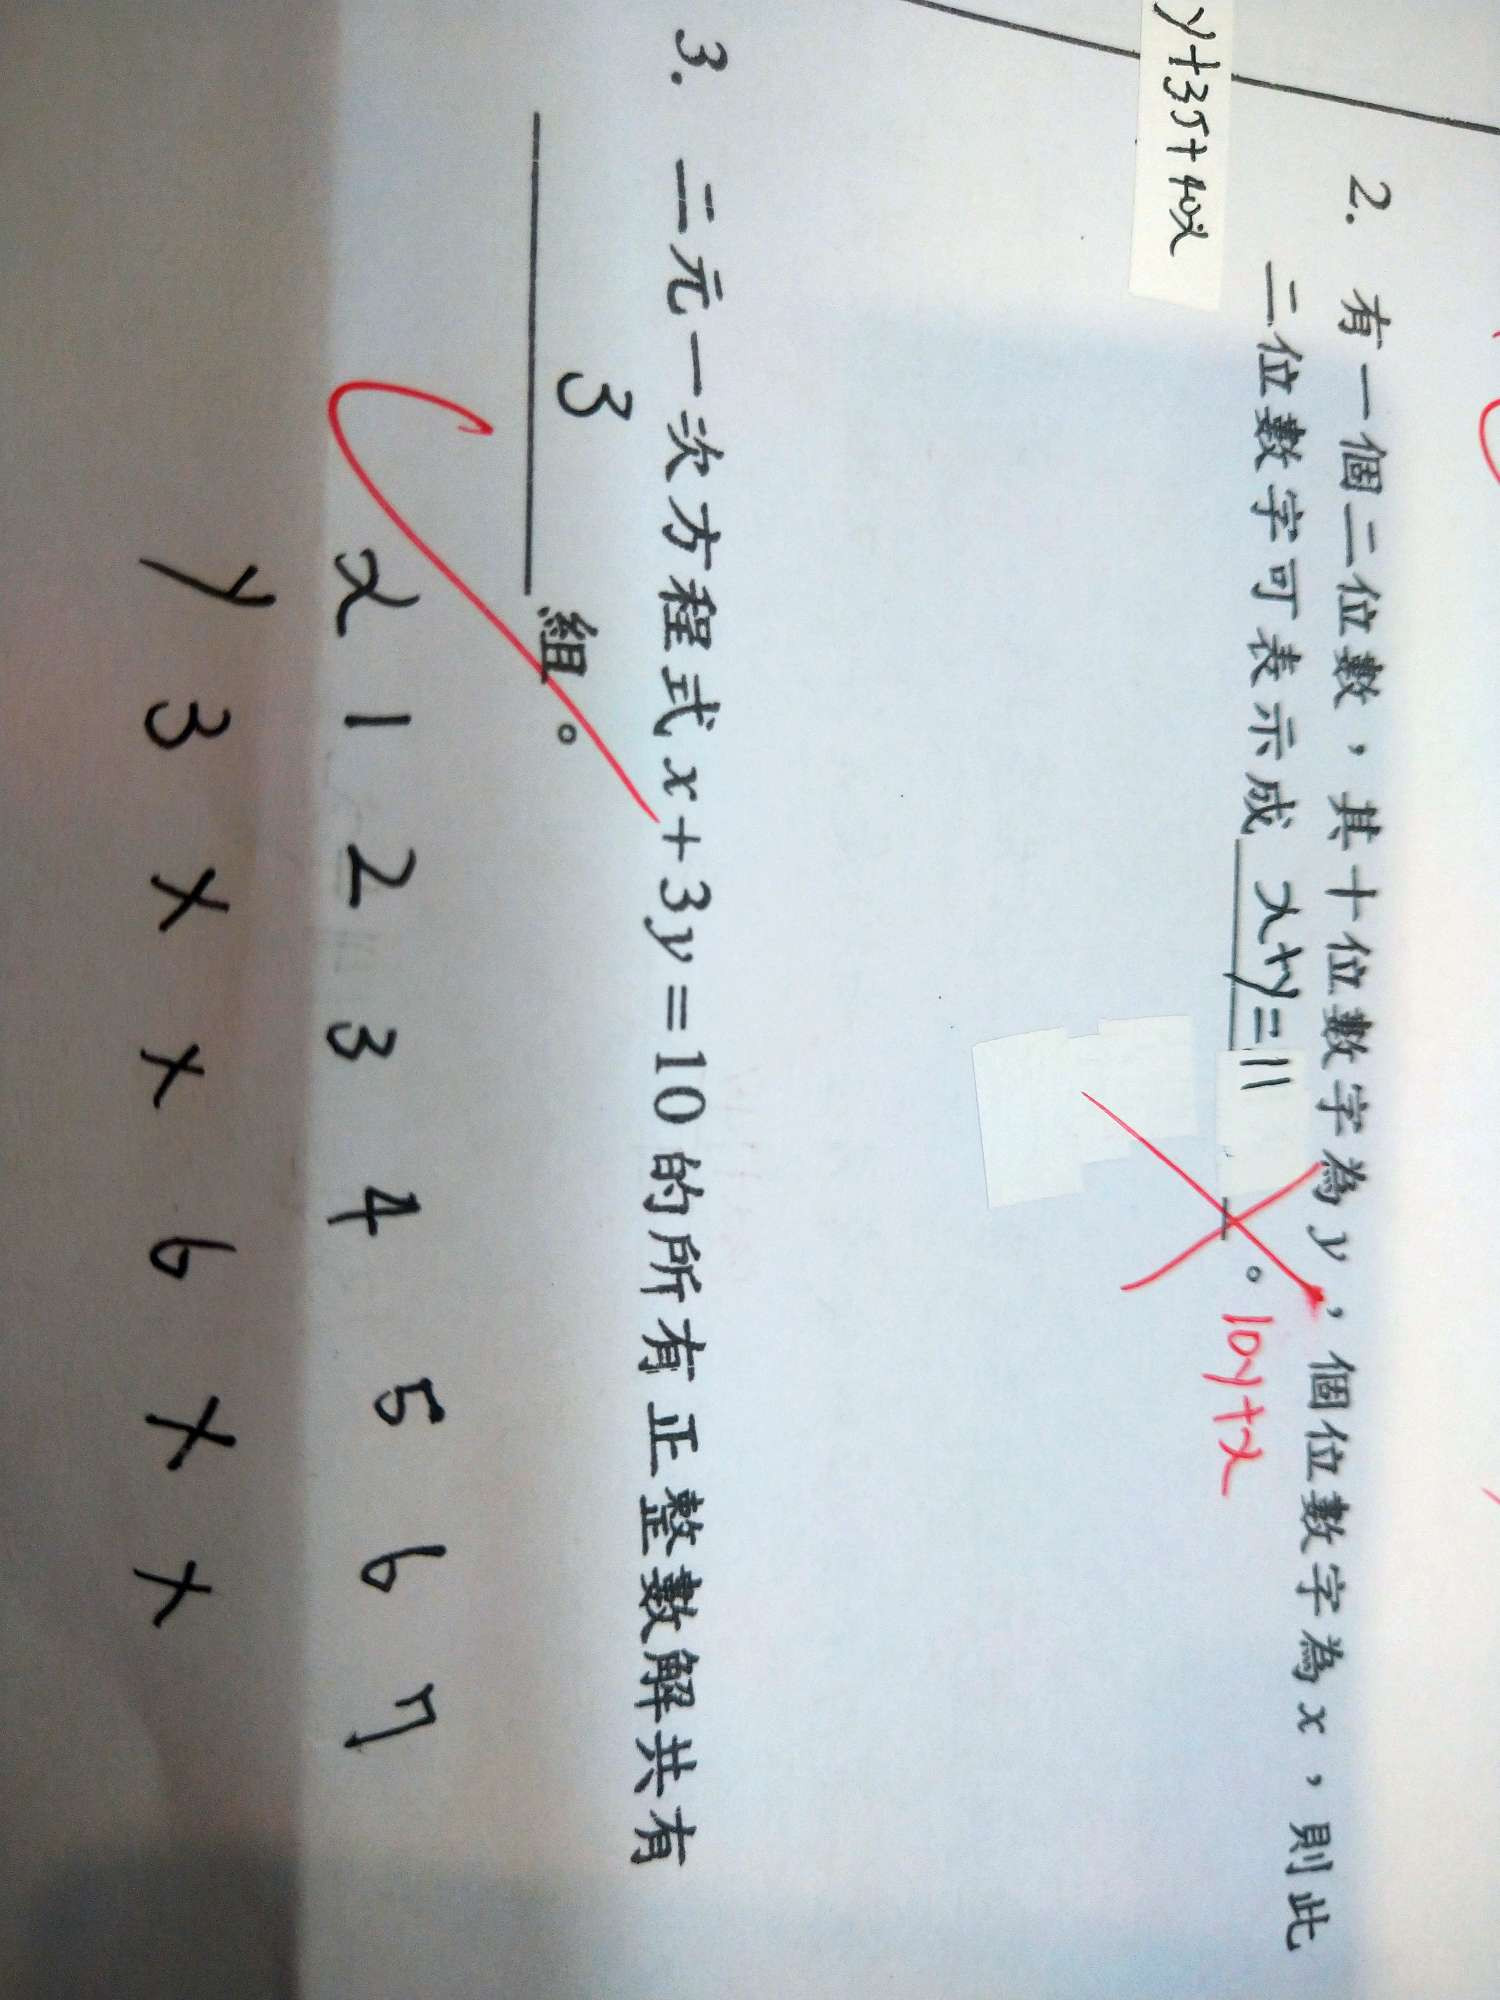 y+35+40x
2. 有一個二位數，其十位數字為y，個位數字為x，則此
二位數字可表示成 x+y=11 。10y+x
3. 二元一次方程式x+3y=10的所有正整數解共有
3 組。
x 1 2 3 4 5 6 7
y 3 x x 6 x x